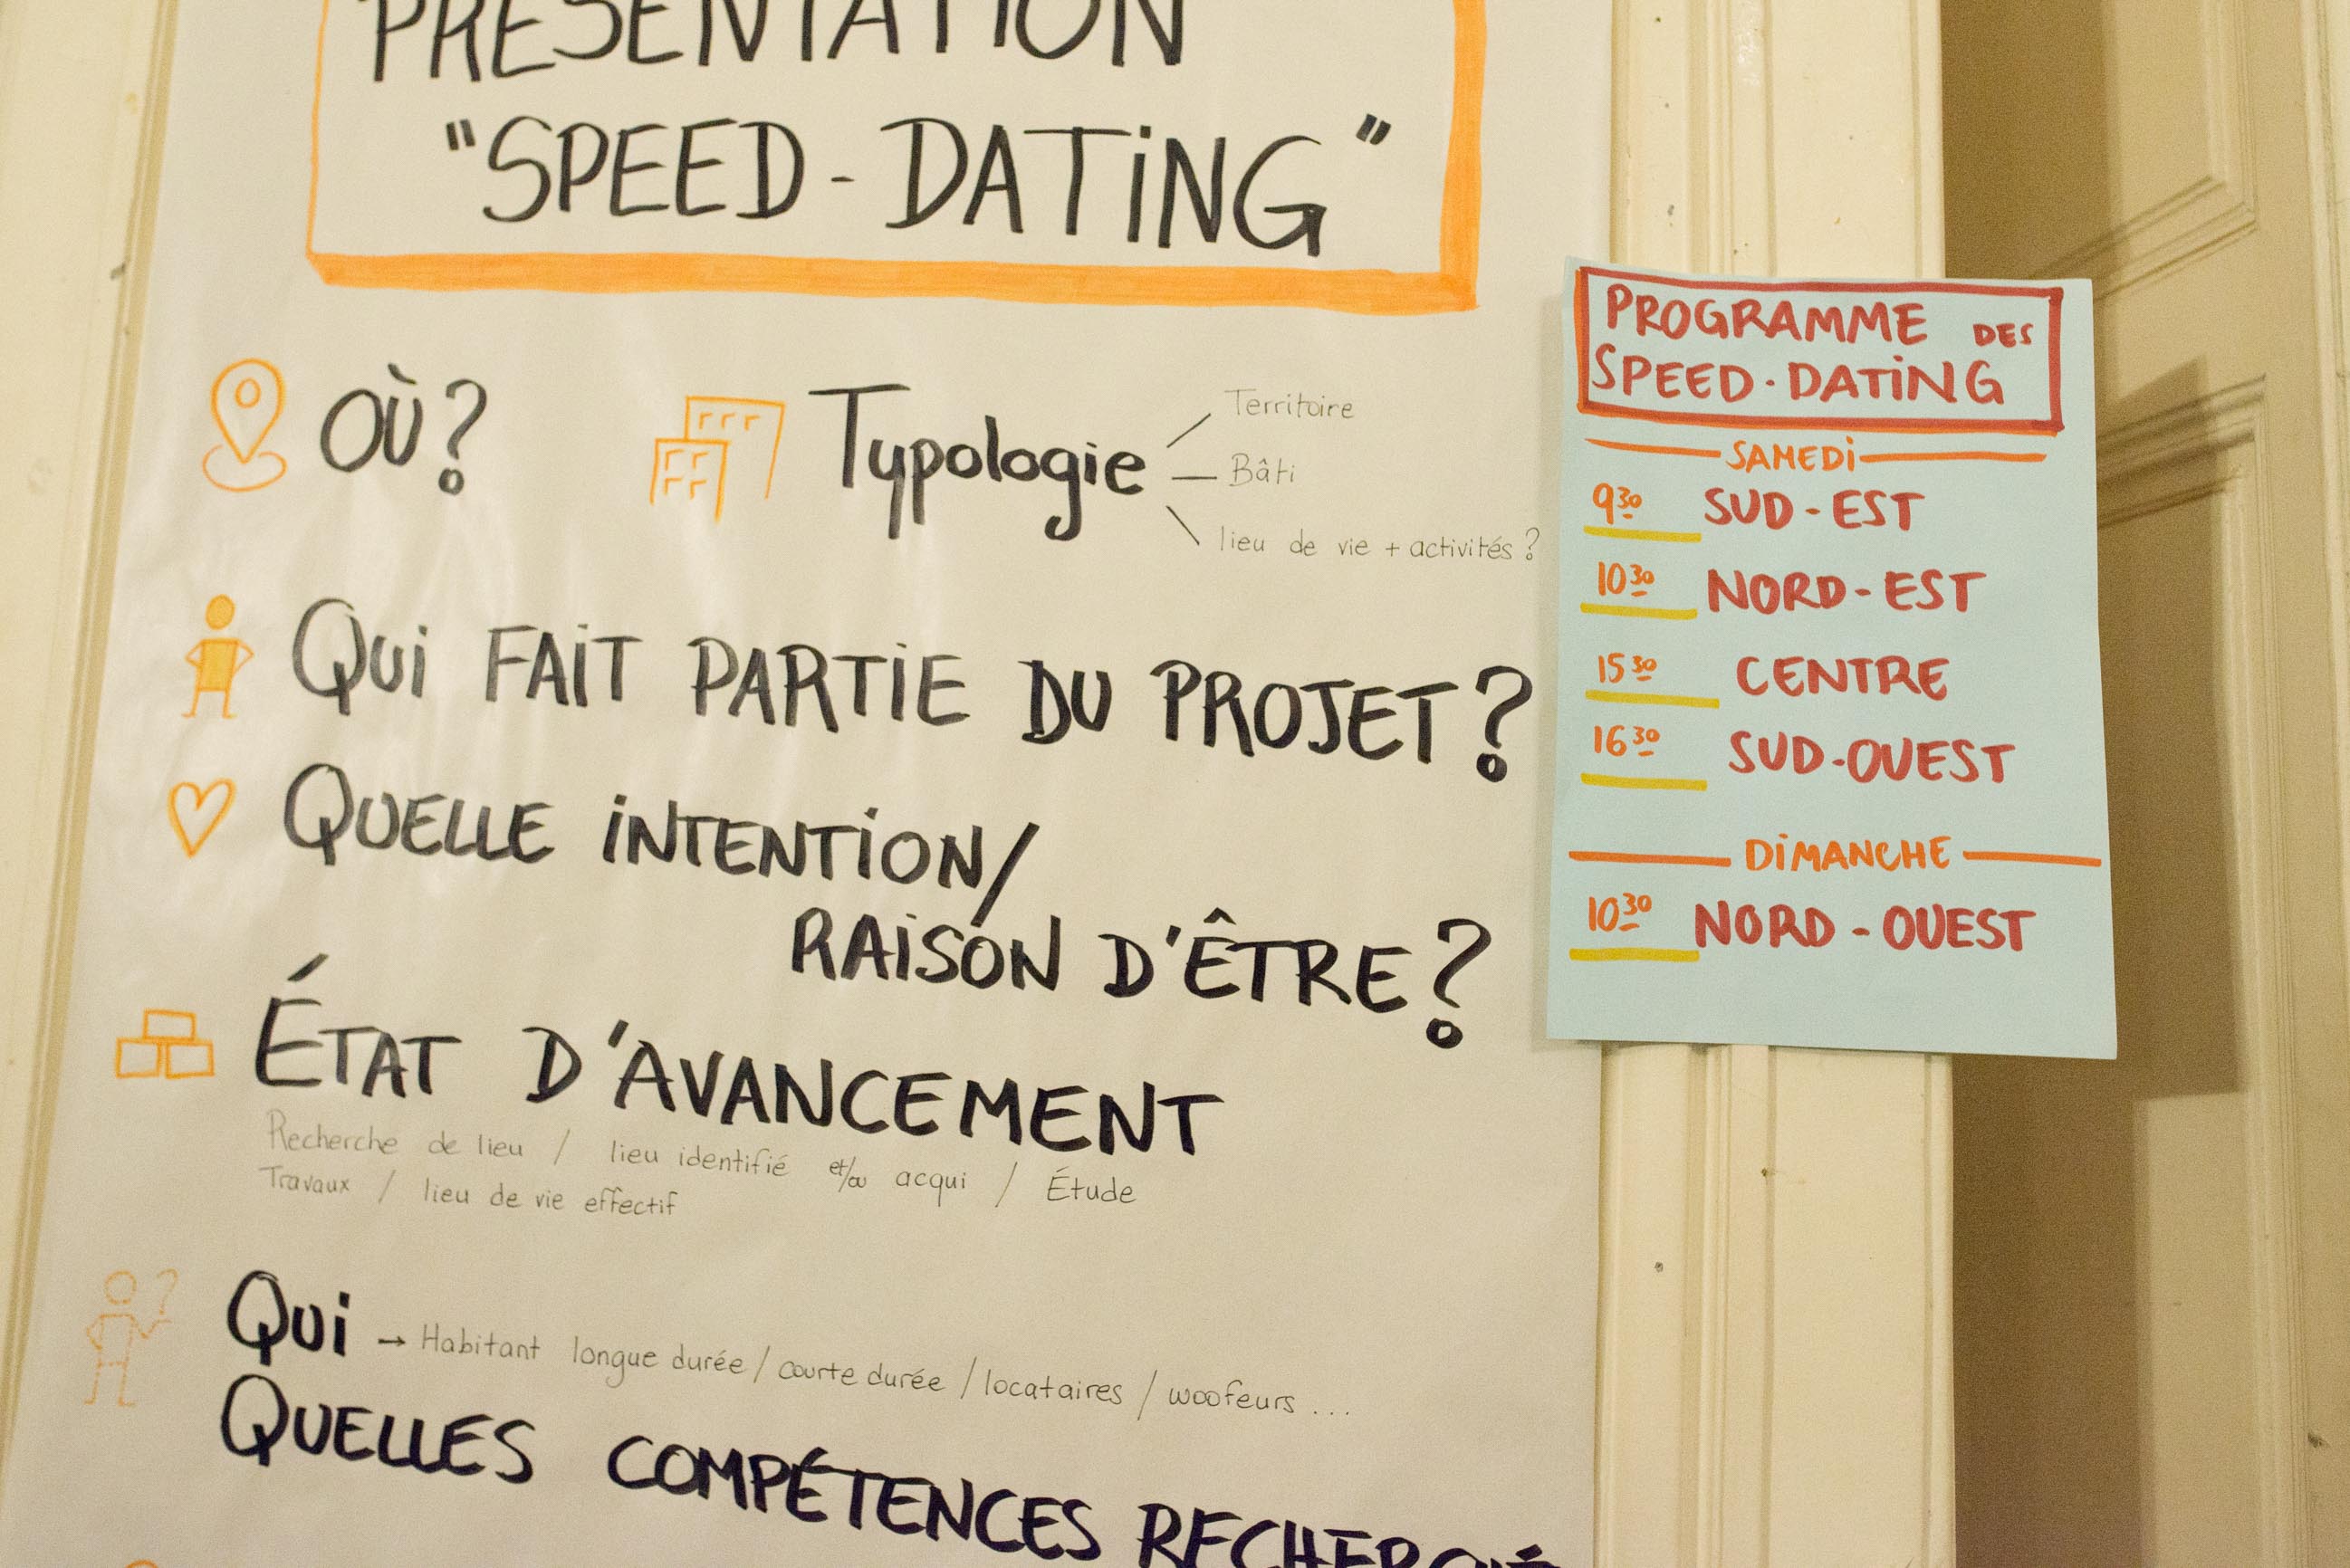 PRÉSENTATION
"SPEED-DATING"
OÙ?
Typologie
Territoire
Bâti
lieu de vie + activités ?
Qui FAIT PARTIE DU PROJET?
QUELLE INTENTION/
RAISON D'ÊTRE?
ÉTAT D'AVANCEMENT
Recherche de lieu / lieu identifié et/ou acqui / Étude
Travaux / lieu de vie effectif
Qui → Habitant longue durée / courte durée / locataires / woofeurs ...
QUELLES COMPÉTENCES
PROGRAMME DES
SPEED-DATING
SAMEDI
9 30 SUD-EST
10 30 NORD-EST
15 30 CENTRE
16 30 SUD-OUEST
DIMANCHE
10 30 NORD-OUEST